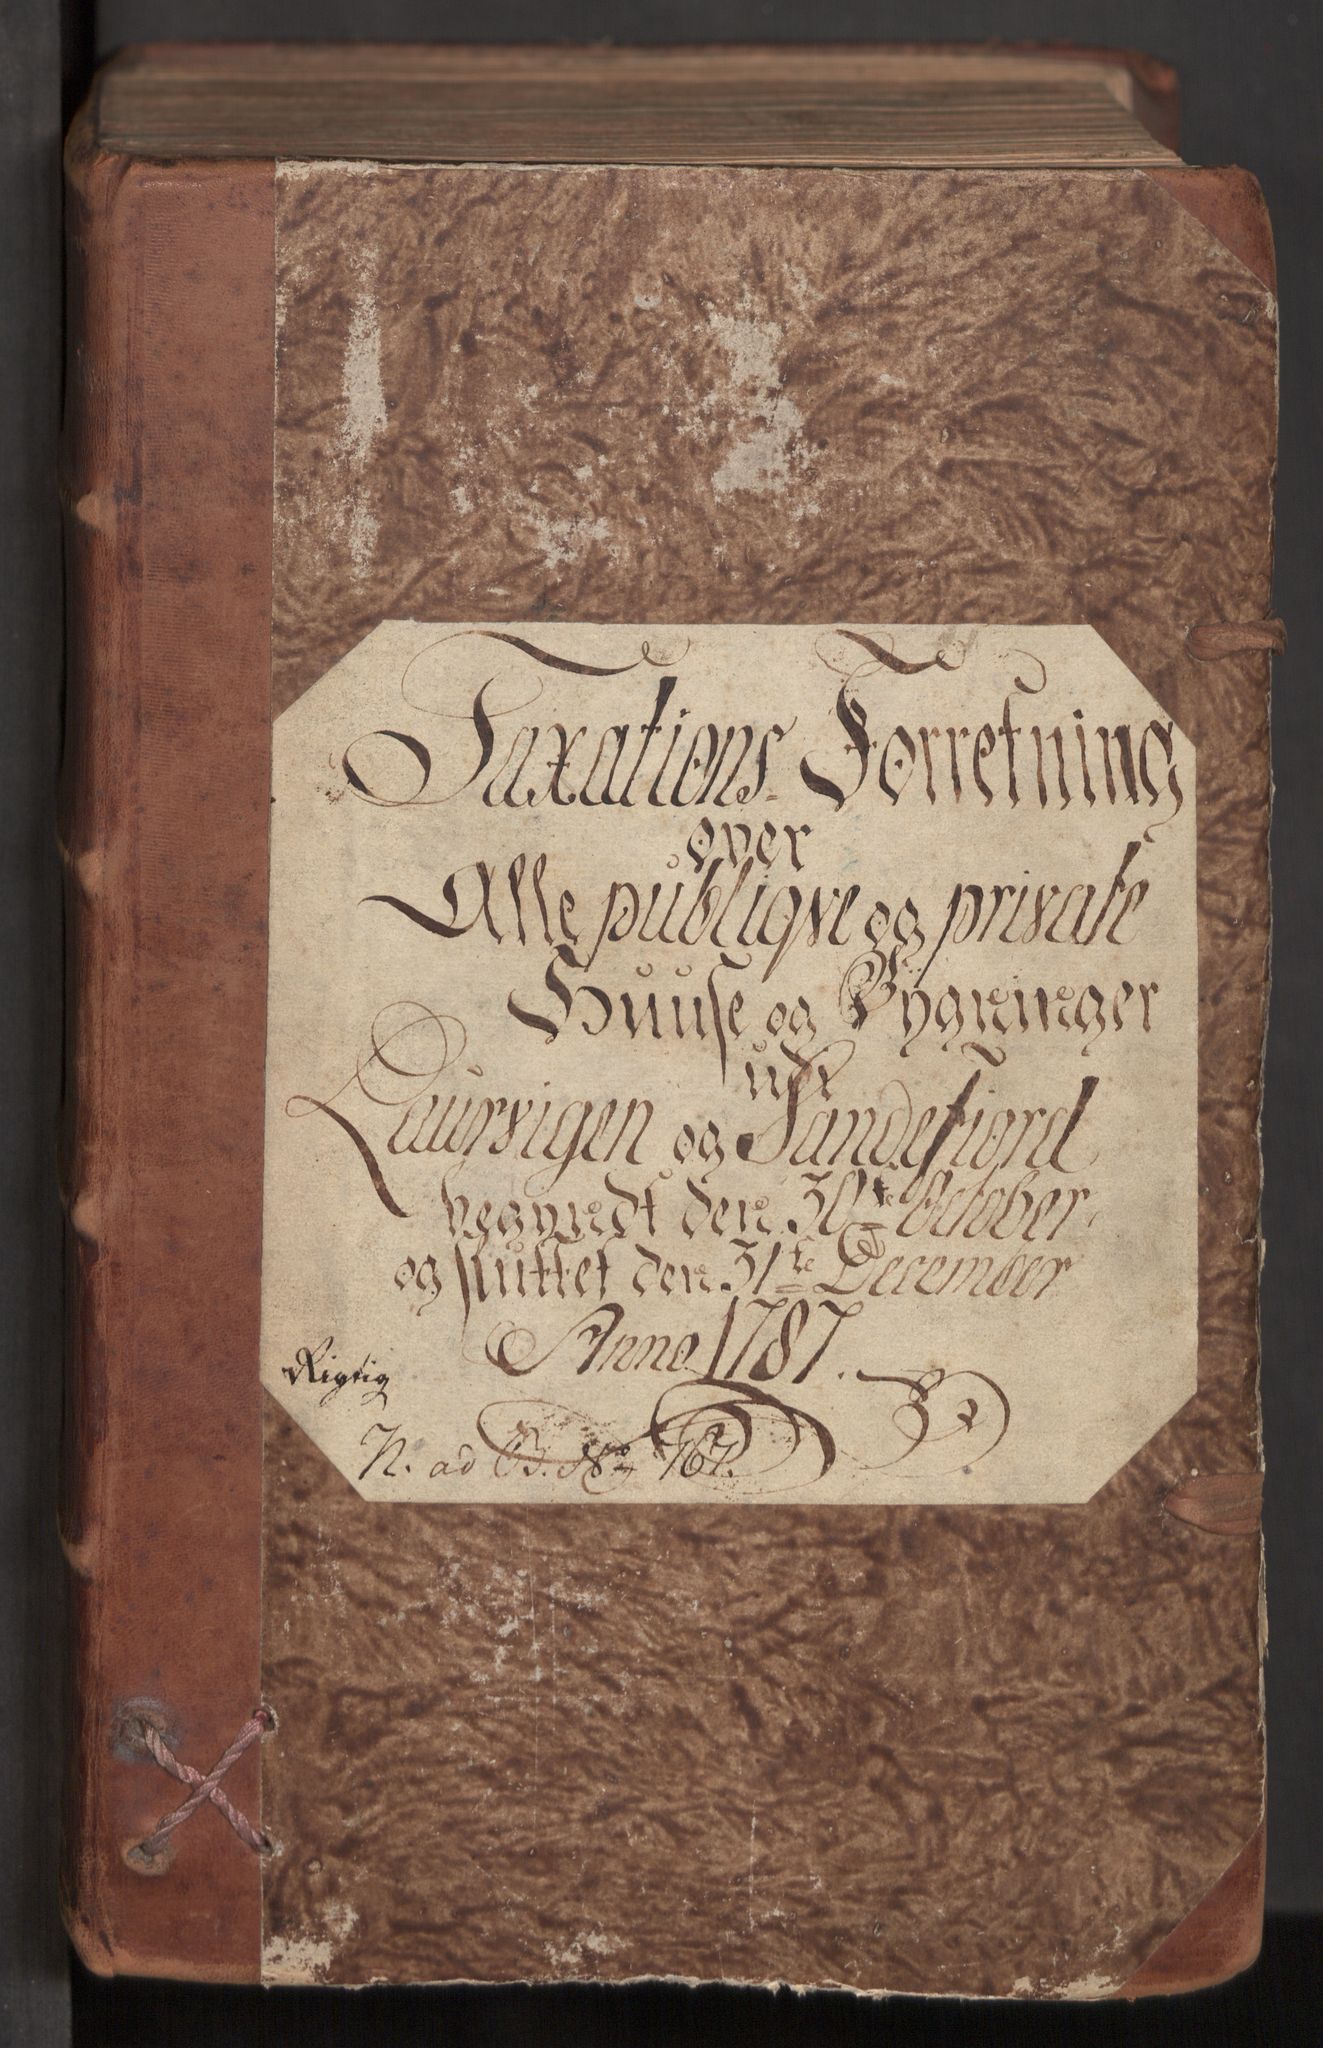 Taxations-Forretning
over
Alle publiqve og private
Huuse og Bygninger
udi
Laurvigen og Sandefiord
begyndt den 30te October,
og sluttet den 31te December
Anno 1787.
Rigtig
N. ad B. No 767.